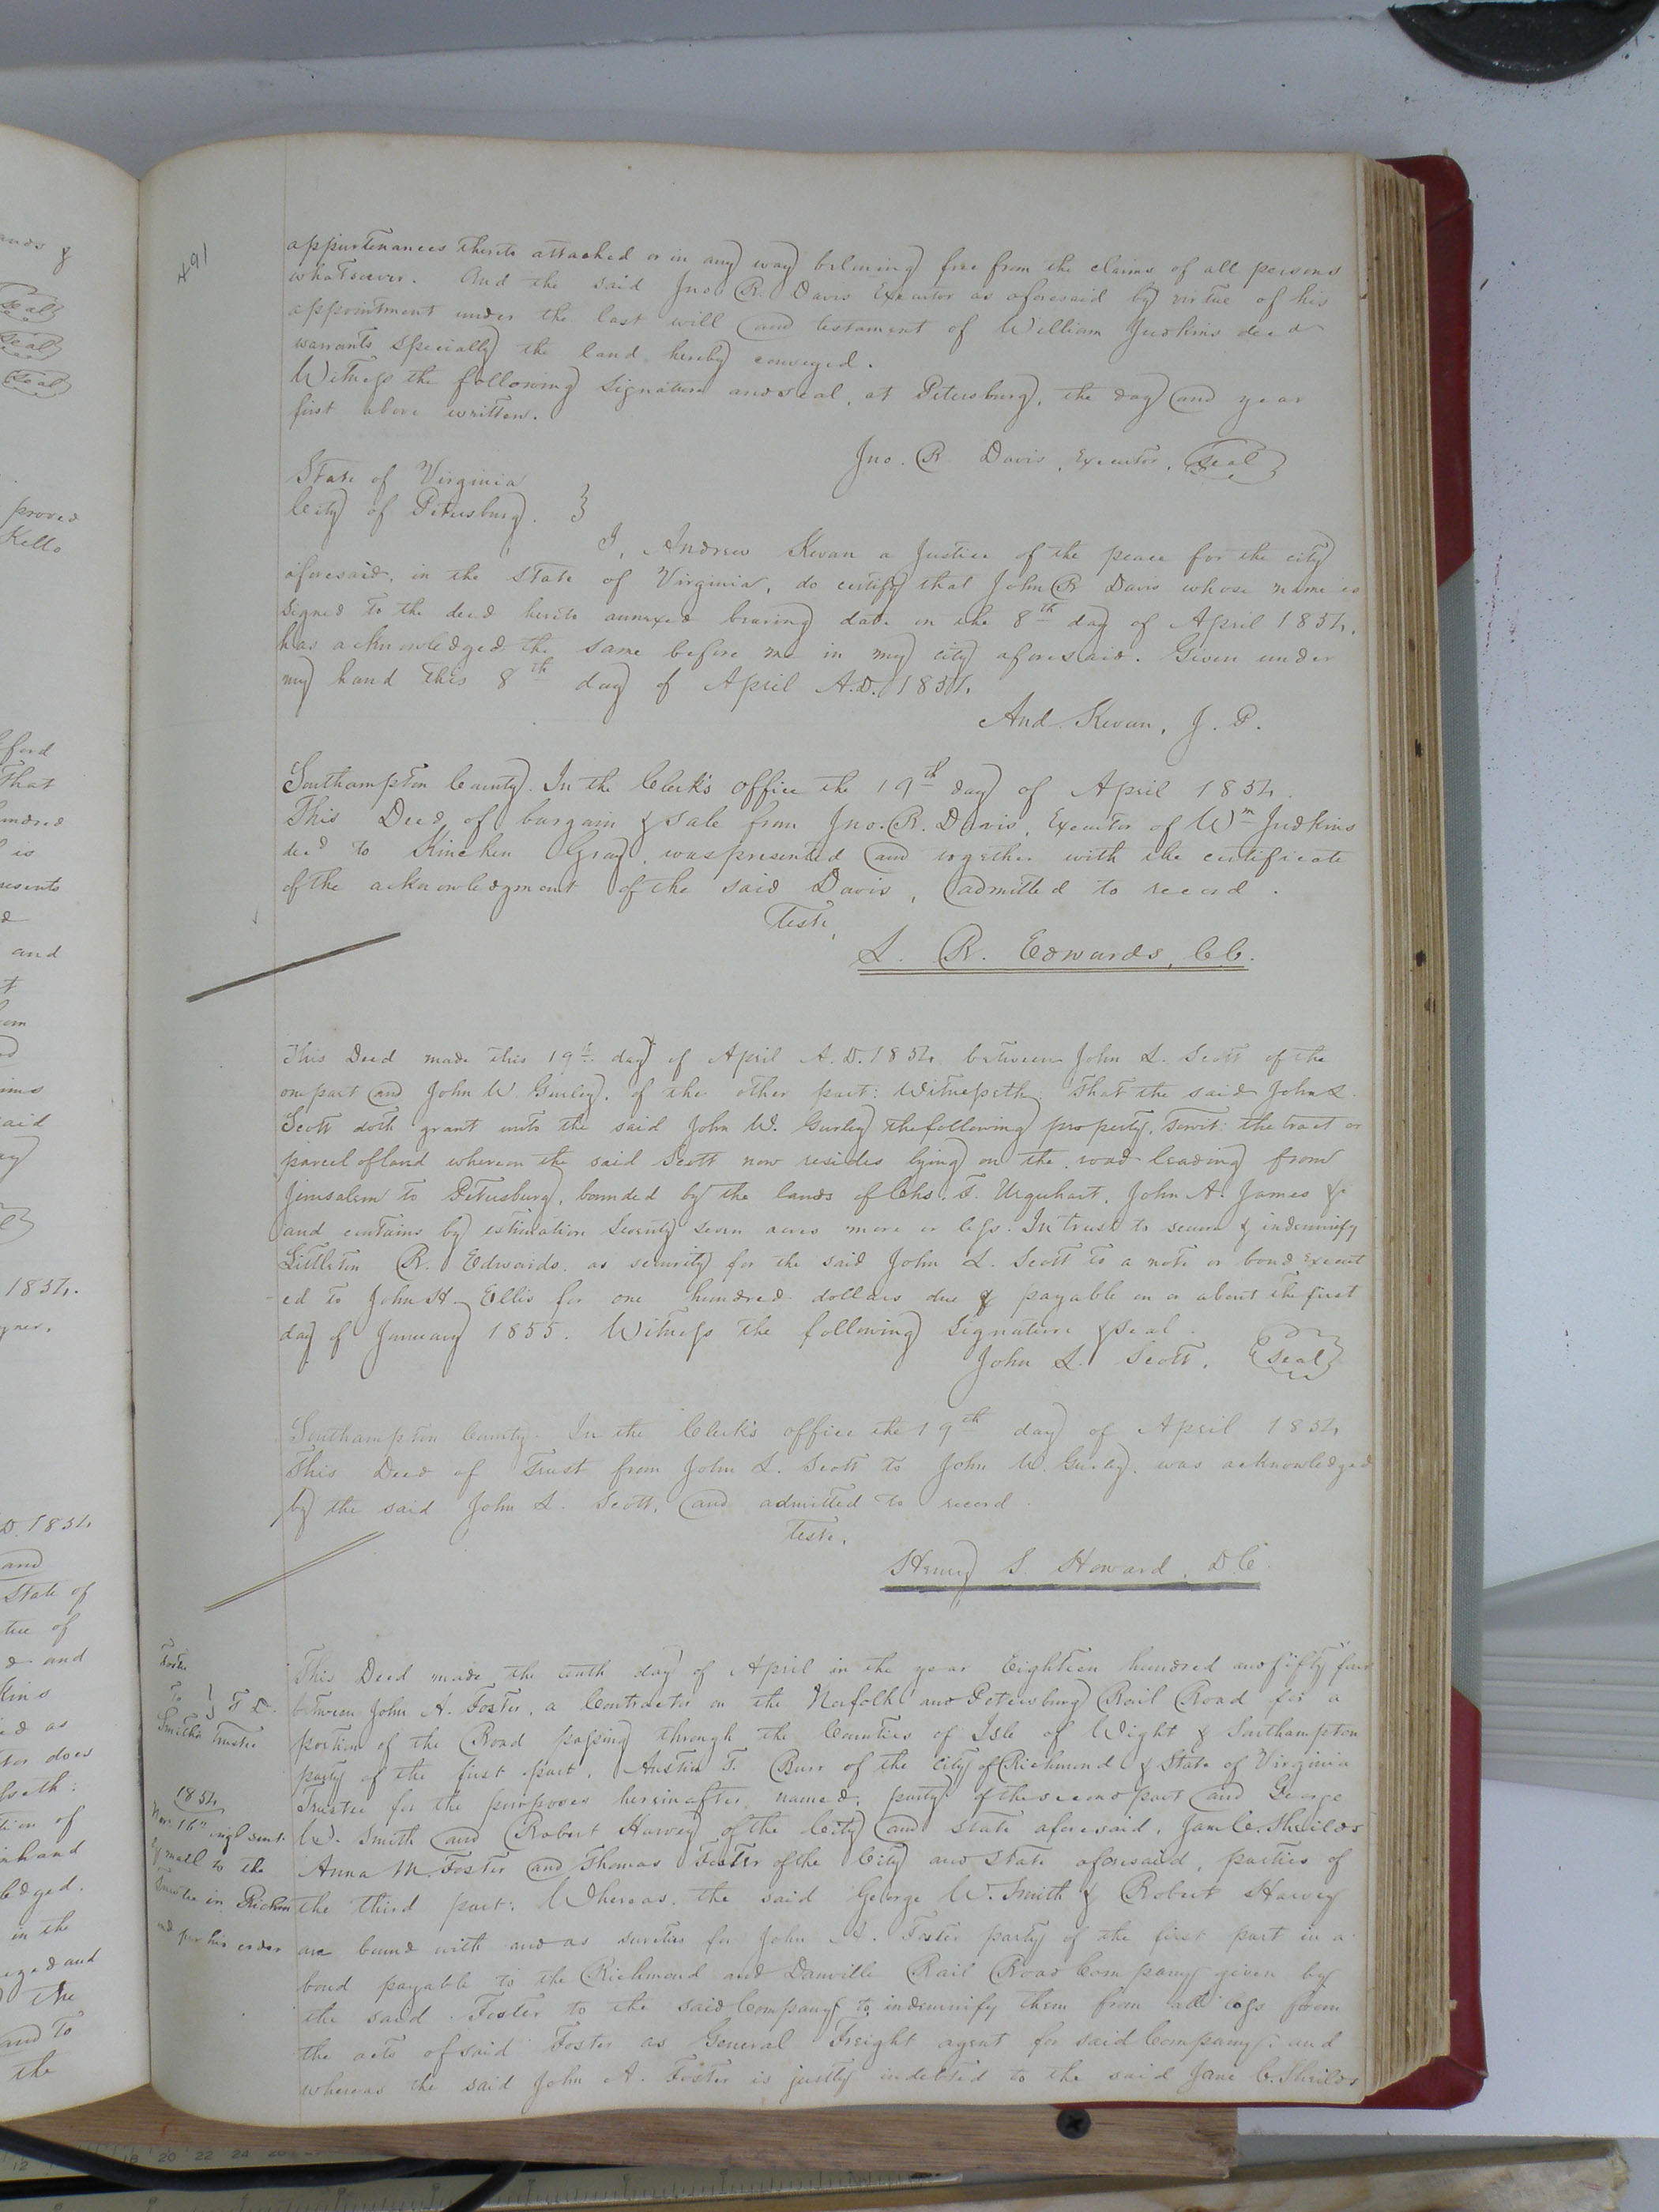 491
appurtenances thereto attached or in any way belonging free from the claims of all persons
whatsoever. And the said Jno. R. Davis Executor as aforesaid by virtue of his
appointment under the last will and testament of William Judkins decd
warrants Specially the land hereby conveyed.
Witness the following signature and seal, at Petersburg, the day and year
first above written.
Jno. R Davis, Executor, Seal
State of Virginia
City of Petersburg. }
I, Andrew Kevan a Justice of the peace for the city
aforesaid, in the State of Virginia, do certify that John R Davis whose name is
signed to the deed hereto annexed bearing date on the 8th day of April 1854,
has acknowledged the same before me in my city aforesaid. Given under
my hand this 8th day of April A.D. 1854
And. Kevan, J. P.
Southampton County. In the Clerk's office the 19th day of April 1854.
This Deed of bargain & sale from Jno. R. Davis, Executor of Wm Judkins
decd to Kinchen Gray, was presented and together with the certificate
of the acknowledgment of the said Davis, admitted to record.
Teste,
L. R. Edwards, C.C.
This Deed made this 19th day of April A.D. 1854 between John L. Scott of the
one part and John W. Gurley, of the other part: Witnesseth: That the said John L.
Scott doth grant unto the said John W. Gurley the following property, Towit: the tract or
parcel of land whereon the said Scott now resides lying on the road leading from
Jerusalem to Petersburg, bounded by the lands of Chs. F. Urquhart, John A. James &c
and contains by estimation Seventy Seven acres more or less. In trust to secure & indemnify
Littleton R. Edwards, as security for the said John L. Scott to a note or bond execut
ed to John H. Ellis for one hundred dollars due & payable on or about the first
day of January 1855. Witness the following signature & seal.
John L. Scott, Seal
Southampton County. In the Clerk's office the 19th day of April 1854
This Deed of Trust from John L. Scott to John W. Gurley, was acknowledged
by the said John L. Scott, and admitted to record.
Teste,
Henry S. Howard, D.C.
Foster
To } T. D.
Smith's Trustee
1854
Nov. 16" origl sent
by mail to the
Trustee in Richm
per his order
This Deed made the tenth day of April in the year Eighteen hundred and fifty four
between John A. Foster, a Contractor on the Norfolk and Petersburg Rail Road for a
portion of the Road passing through the Counties of Isle of Wight & Southampton
party of the first part, Austin T. Burr of the City of Richmond & State of Virginia
Trustee for the purposes hereinafter named, party of the second part and George
W. Smith and Robert Harvey of the City and State aforesaid, Jane C. Sheilds
Anna M. Foster and Thomas Foster of the City and State aforesaid, parties of
the third part: Whereas, the said George W. Smith & Robert Harvey
are bound with and as sureties for John A. Foster party of the first part in a
bond payable to the Richmond and Danville Rail Road Company given by
the said Foster to the said Company to indemnify them from all loss from
the acts of said Foster as General Freight agent for said Company, and
whereas the said John A. Foster is justly indebted to the said Jane C. Sheilds